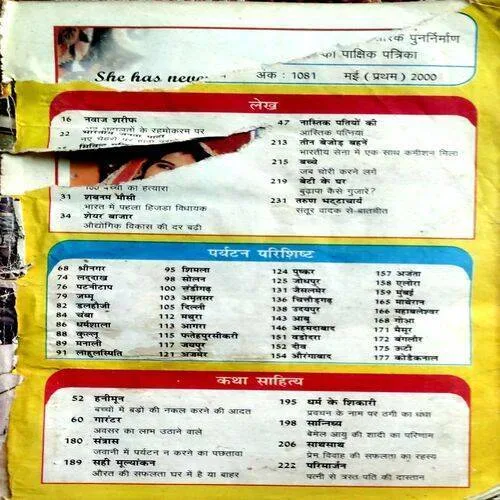 पुनर्निर्माण
का पाक्षिक पत्रिका
She has never
अंक : 1081 मई (प्रथम) 2000
लेख
16 नवाज शरीफ
अब अदालतों के रहमोकरम पर
22 भारतीय जनता पार्टी
100 बच्चों का हत्यारा
31 शबनम मौसी
भारत में पहला हिजड़ा विधायक
34 शेयर बाजार
औद्योगिक विकास की दर बढ़ी
47 नास्तिक पतियों की
आस्तिक पत्नियां
213 तीन बेजोड़ बहनें
भारतीय सेना में एक साथ कमीशन मिला
215 बच्चे
जब चोरी करने लगें
219 बेटी के घर
बुढ़ापा कैसे गुजारें?
231 तरुण भट्टाचार्य
संतूर वादक से बातचीत
पर्यटन परिशिष्ट
68 श्रीनगर
74 लद्दाख
76 पटनीटाप
79 जम्मू
82 डलहौजी
84 चंबा
86 धर्मशाला
88 कुल्लू
89 मनाली
91 लाहुलस्पिति
95 शिमला
98 सोलन
100 चंडीगढ़
103 अमृतसर
105 दिल्ली
112 मथुरा
113 आगरा
115 फतेहपुरसीकरी
117 जयपुर
121 अजमेर
124 पुष्कर
125 जोधपुर
131 जैसलमेर
136 चित्तौड़गढ़
138 उदयपुर
143 आबू
146 अहमदाबाद
151 वडोदरा
152 दीव
154 औरंगाबाद
157 अजंता
158 एलोरा
159 मुंबई
165 माथेरान
166 महाबलेश्वर
168 गोआ
171 मैसूर
172 बंगलौर
175 ऊटी
177 कोडैकनाल
कथा साहित्य
52 हनीमून
बच्चों में बड़ों की नकल करने की आदत
60 गारंटर
अवसर का लाभ उठाने वाले
180 संत्रास
जवानी में पर्यटन न करने का पछतावा
189 सही मूल्यांकन
औरत की सफलता घर में है या बाहर
195 धर्म के शिकारी
प्रवचन के नाम पर ठगी का धंधा
198 सान्निध्य
बेमेल आयु की शादी का परिणाम
206 साथसाथ
प्रेम विवाह की सफलता का रहस्य
222 परिमार्जन
पत्नी से त्रस्त पति की दास्तान